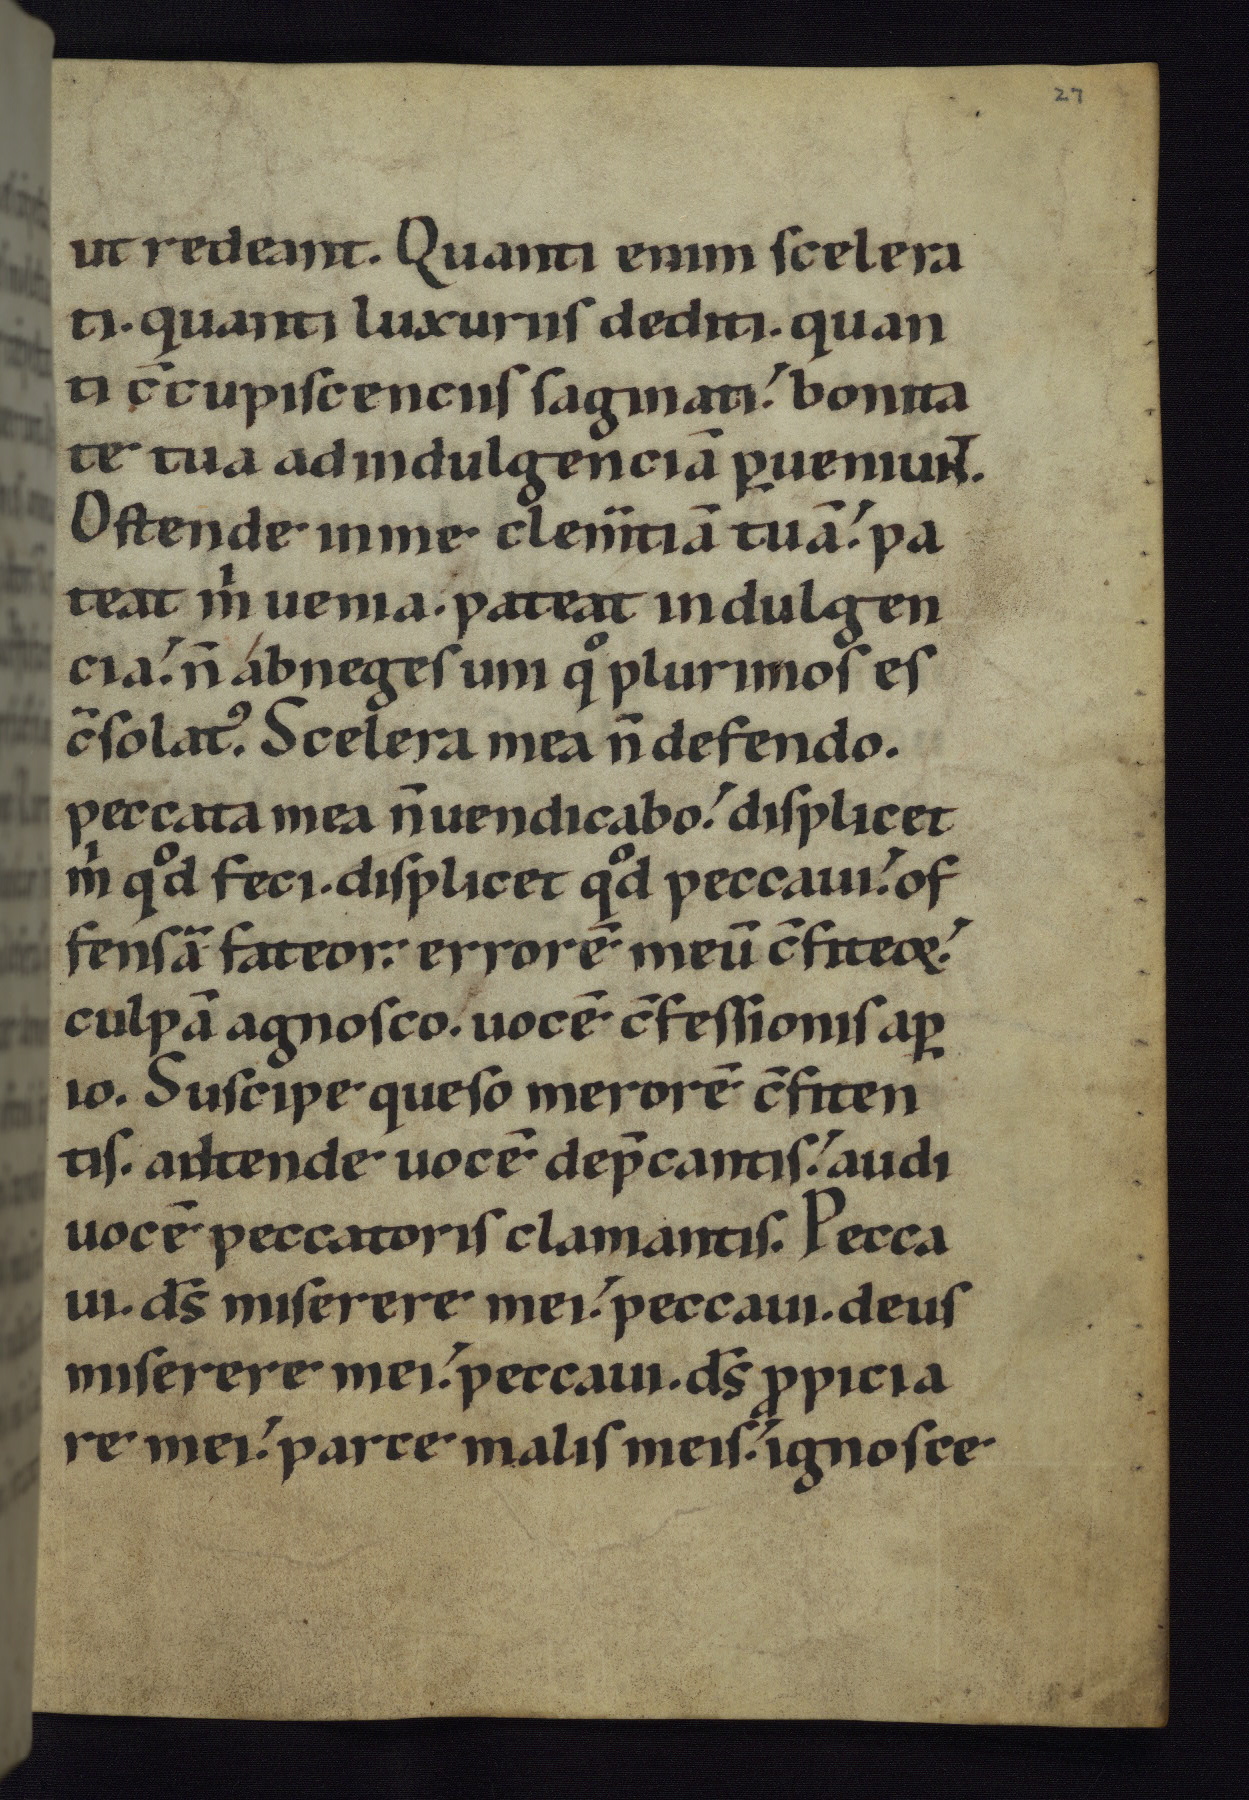 27
ut redeant. Quanti enim ſcelera
ti. quanti luxuriis dediti. quan
ti c̄cupiſcenciis ſaginati. bonita
te tua ad indulgenciā ꝑueniunt.
Oſtende in me clem̄tiā tuā. pa
teat m̍ uenia. pateat indulgen
cia. n̄ abneges uni qͦ plurimos es
c̄ſolatꝰ. Scelera mea n̄ defendo.
peccata mea n̄ uendicabo. diſplicet
m̍ qͦd feci. diſplicet qͦd peccaui. of
fenſā fateor. errorē meū c̄fiteor.
culpā agnoſco. uocē c̄feſſionis aꝑ
io. Suſcipe queſo merorē c̄fiten
tis. adtende uocē dep̄cantis. audi
uocē peccatoris clamantis. Pecca
ui. dſ̄ miſerere mei. peccaui. deus
miſerere mei. peccaui. dſ̄ ꝓpicia
re mei. parce malis meis. ignoſce